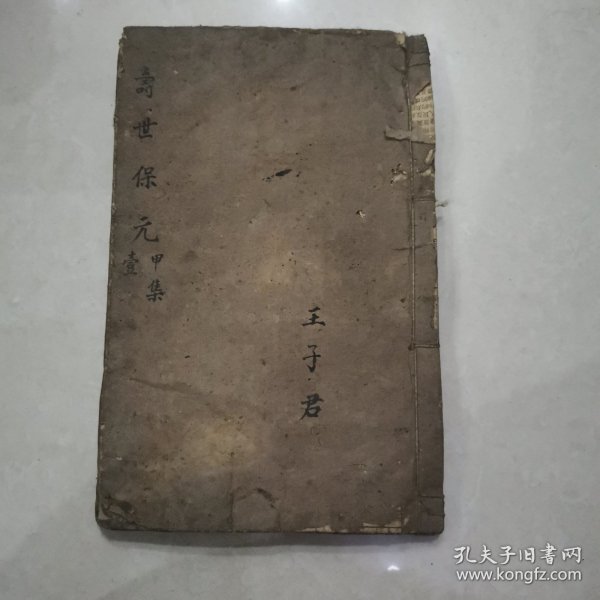 壽世保元
甲集
壹
王子君
孔夫子旧書网
www.kongfz.com